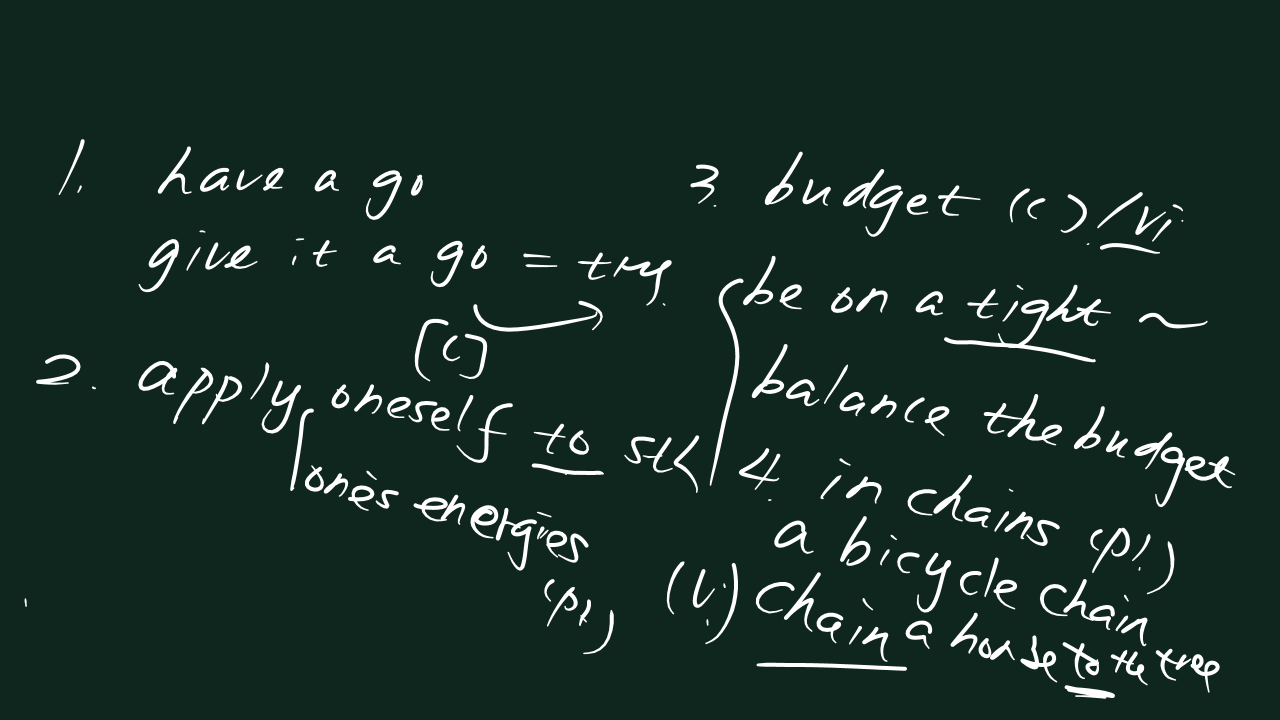 1. have a go
give it a go = try.
[C]
2. apply oneself to sth
one's energies
(pl.)
3. budget (C)./vi.
be on a tight ~
balance the budget
4. in chains (pl.)
a bicycle chain
(v.) chain a horse to the tree